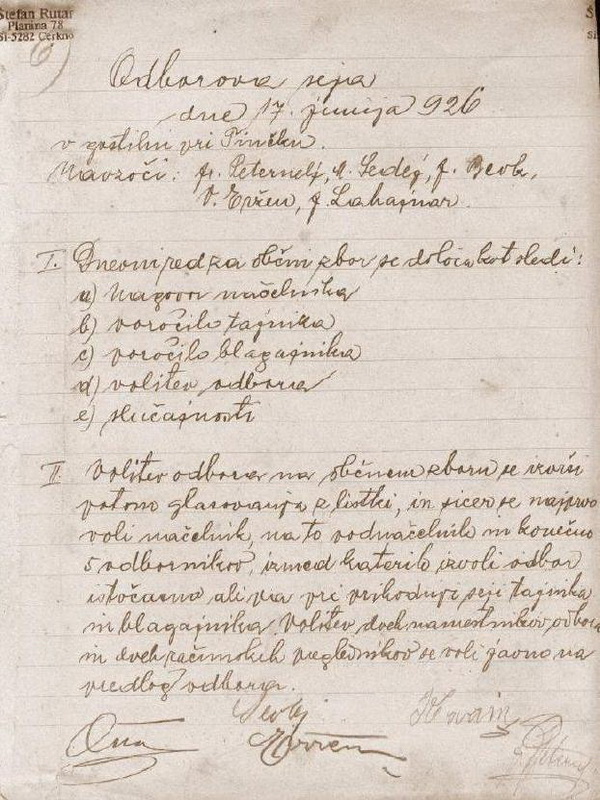 Štefan Rutar
Planina 78
SI-5282 Cerkno
6)
Odborova seja
dne 17. junija 926
v gostilni pri
Navzoči: fr. Peternelj, A. Sedej, J. Beuk,
V. Eržen, J. Lahajnar.
I. Dnevni red za občni zbor se določa kot sledi:
a) nagovor načelnika
b) poročilo tajnika
c) poročilo blagajnika
d) volitev odbora
e) slučajnosti
II. Volitev odbora na občnem zboru se izvrši
potom glasovanja z listki, in sicer se najprvo
voli načelnik, na to podnačelnik in konečno
5 odbornikov, izmed katerih izvoli odbor
istočasno ali pa pri prihodnji seji tajnika
in blagajnika. Volitev dveh namestnikov odbora
in dveh računskih preglednikov se voli javno na
predlog odbora.